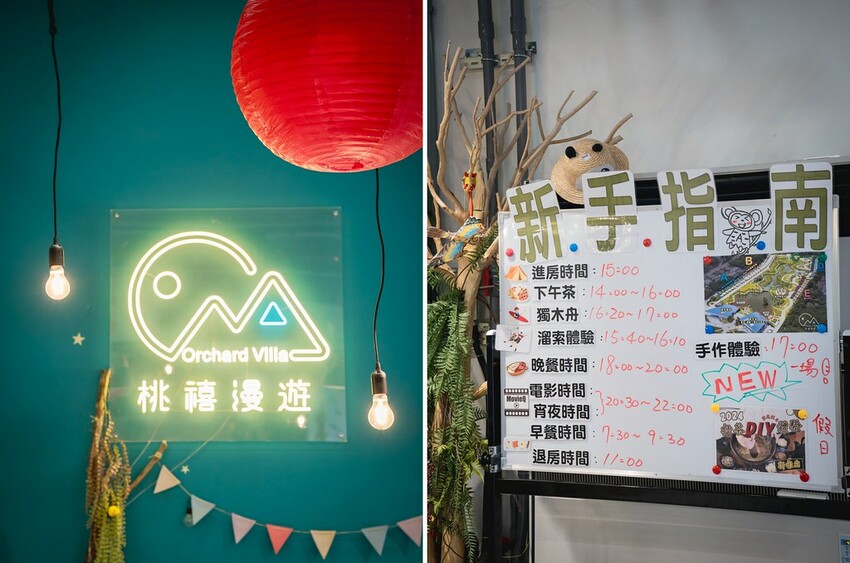 Orchard Villa
桃禧漫遊
新手指南
進房時間:15:00
下午茶:14:00~16:00
獨木舟:16:20~17:00
溜索體驗:15:40~16:10
晚餐時間:18:00~20:00
MovieQ
電影時間:
宵夜時間:
}20:30~22:00
早餐時間:7:30~9:30
退房時間:11:00
A
B
E
手作體驗:17:00
NEW
一場
假日
2024
DIY